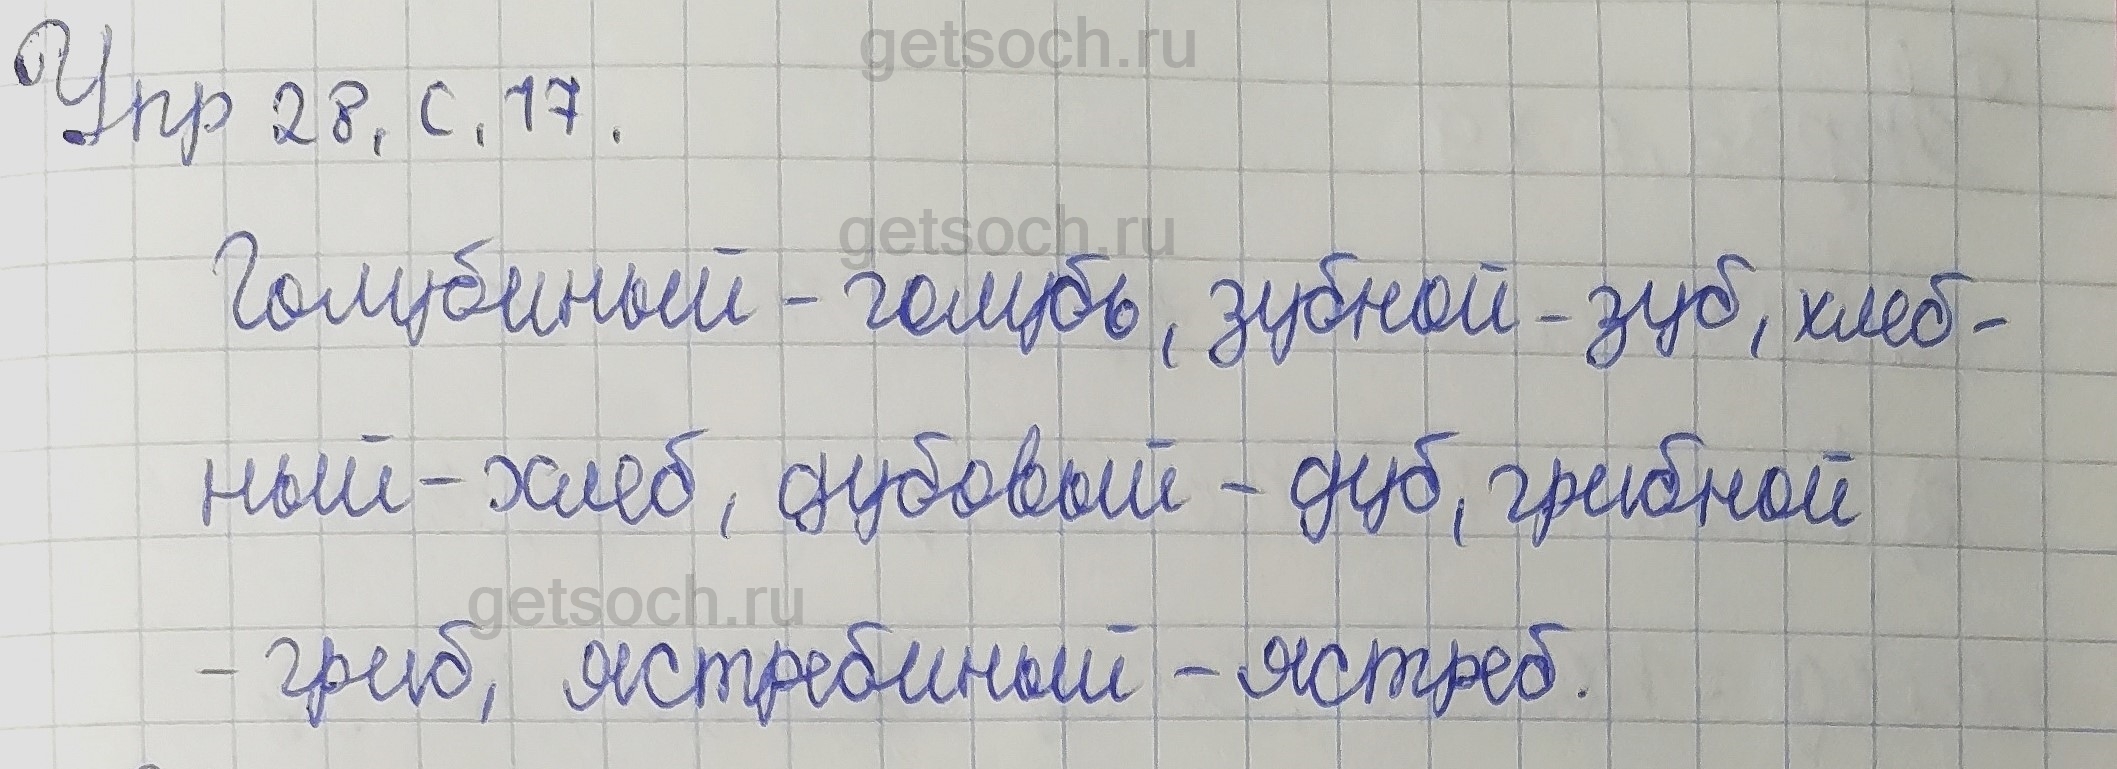 getsoch.ru
Упр 28, с. 17.
getsoch.ru
Голубиный - голубь, зубной - зуб, хлеб-
ный - хлеб, дубовый - дуб, грибной
getsoch.ru
- гриб, ястребиный - ястреб.